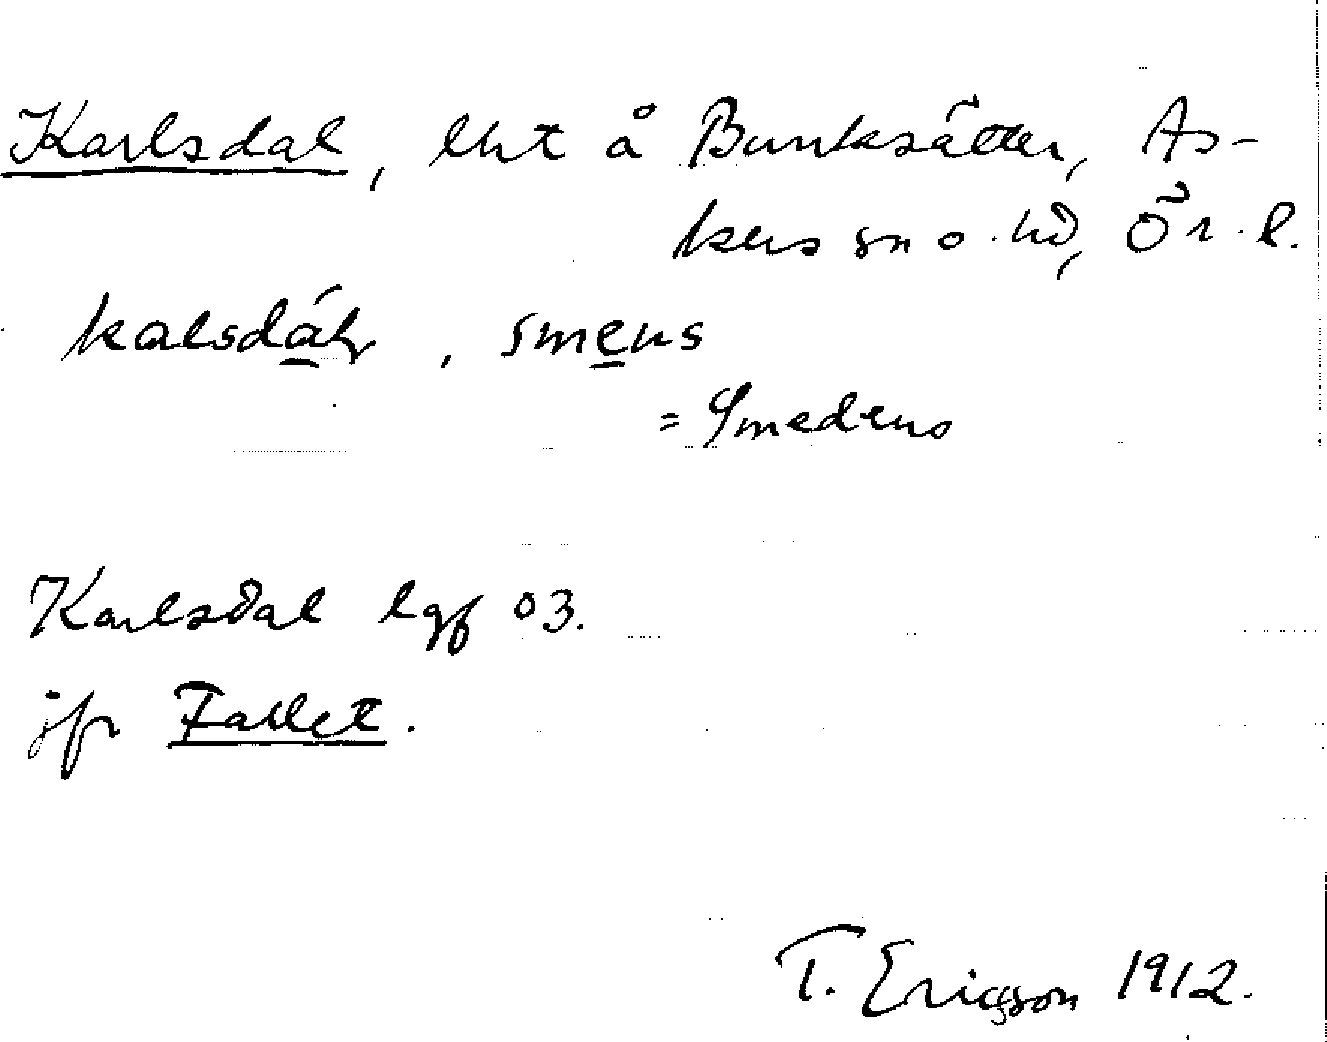 Karlsdal, lht å Bunksätter, As-
kers sn o. hd, Ör. l.
kalsdál, smens
= Smedens
Karlsdal lgf 03.
jfr Fallet.
T. Ericsson 1912.